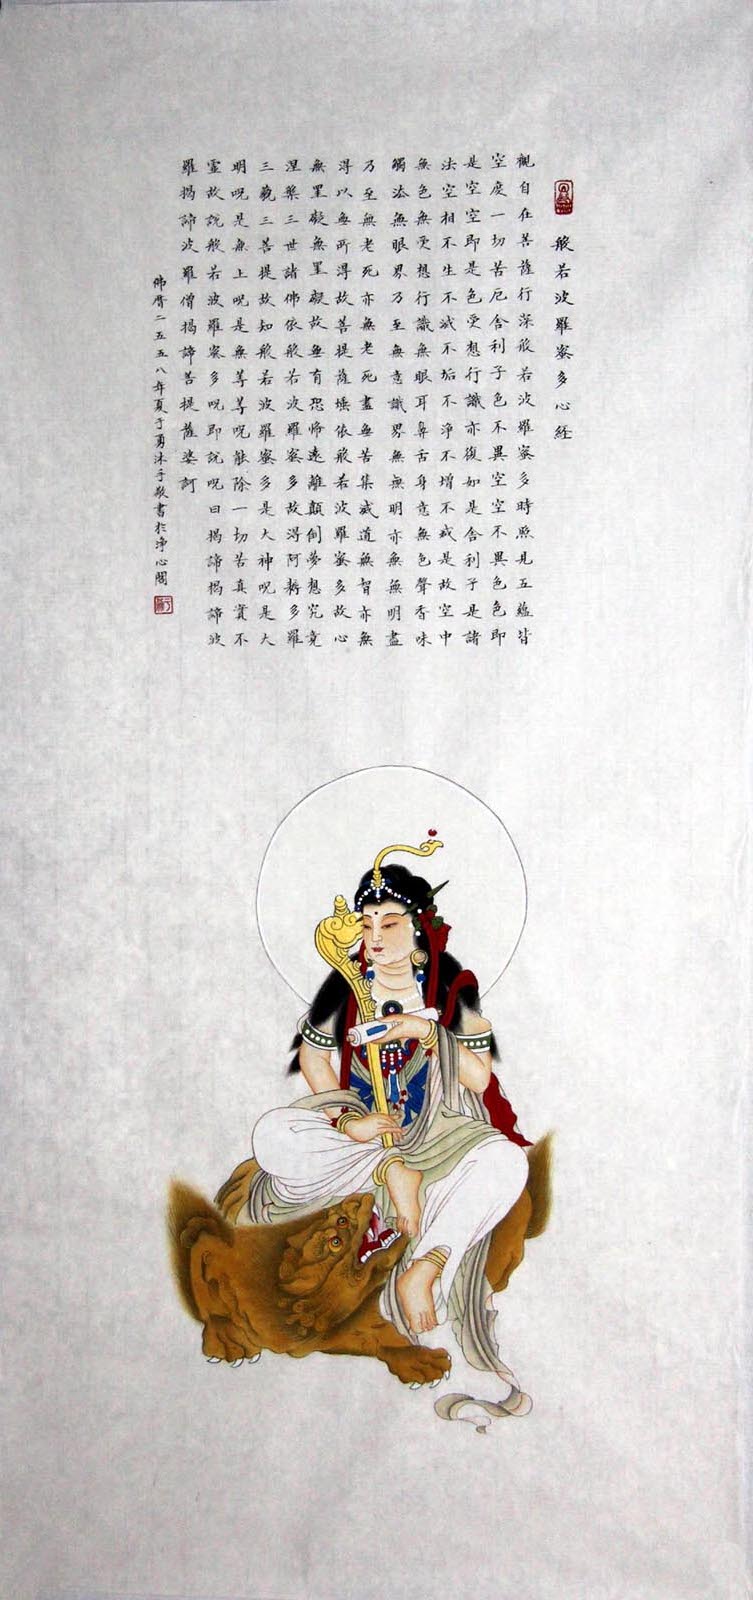 般若波羅蜜多心経
觀自在菩薩行深般若波羅蜜多時照見五蘊皆
空度一切苦厄舍利子色不異空空不異色色即
是空空即是色受想行識亦復如是舍利子是諸
法空相不生不滅不垢不淨不增不減是故空中
無色無受想行識無眼耳鼻舌身意無色聲香味
觸法無眼界乃至無意識界無無明亦無無明盡
乃至無老死亦無老死盡無苦集滅道無智亦無
得以無所得故菩提薩埵依般若波羅蜜多故心
無罣礙無罣礙故無有恐怖遠離顛倒夢想究竟
涅槃三世諸佛依般若波羅蜜多故得阿耨多羅
三藐三菩提故知般若波羅蜜多是大神呪是大
明呪是無上呪是無等等呪能除一切苦真實不
虛故說般若波羅蜜多呪即說呪曰揭諦揭諦波
羅揭諦波羅僧揭諦菩提薩婆訶
佛曆二五五八年夏于勇沐手敬書於淨心閣